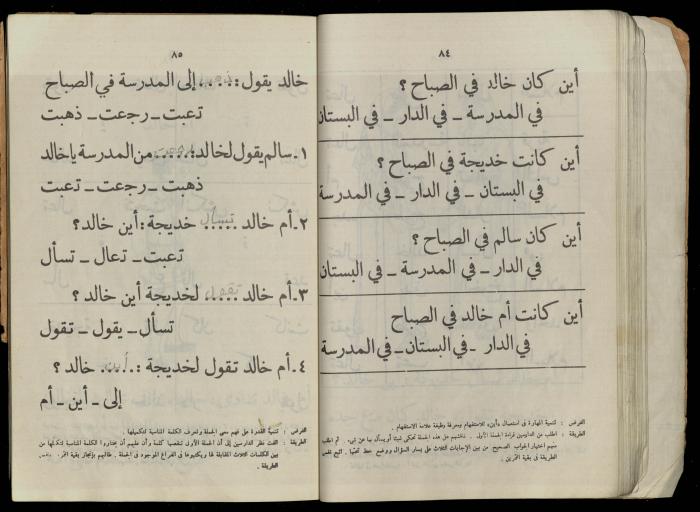 ٨٤
أين كان خالد في الصباح ؟
في المدرسة ــ في الدار ــ في البستان
أين كانت خديجة في الصباح ؟
في البستان ــ في الدار ــ في المدرسة
أين كان سالم في الصباح ؟
في الدار ــ في المدرسة ــ في البستان
أين كانت أم خالد في الصباح
في الدار ــ في البستان ــ في المدرسة
الغرض : تنمية المهارة في استعمال «أين» للاستفهام ومعرفة وظيفة علامة الاستفهام .
الطريقة : اطلب من الدارسين قراءة الجملة الأولى . ناقشهم هل هذه الجملة تحكي شيئا أو يسأل بها عن شيء . ثم اطلب
منهم اختيار الجواب الصحيح من بين الإجابات الثلاث على يسار السؤال ووضع خط تحتها . اتبع نفس
الطريقة في بقية التمرين .
٨٥
خالد يقول : ..ذهبت.. إلى المدرسة في الصباح
تعبت ــ رجعت ــ ذهبت
١. سالم يقول لخالد : ..رجعت.. من المدرسة يا خالد
ذهبت ــ رجعت ــ تعبت
٢. أم خالد تسأل ..... خديجة : أين خالد ؟
تعبت ــ تعال ــ تسأل
٣. أم خالد تقول ..... لخديجة أين خالد ؟
تسأل ــ يقول ــ تقول
٤. أم خالد تقول لخديجة : ..أين.. خالد ؟
إلى ــ أين ــ أم
الغرض : تنمية القدرة على فهم معنى الجملة وتعرف الكلمة المناسبة لتكميلها .
الطريقة : الفت نظر الدارسين إلى أن الجملة الأولى تنقصها كلمة وأن عليهم أن يختاروا الكلمة المناسبة لتكملها من
بين الكلمات الثلاث المقابلة لها ويكتبوها في الفراغ الموجود في الجملة . طالبهم بإنجاز بقية التمرين بنفس
الطريقة .